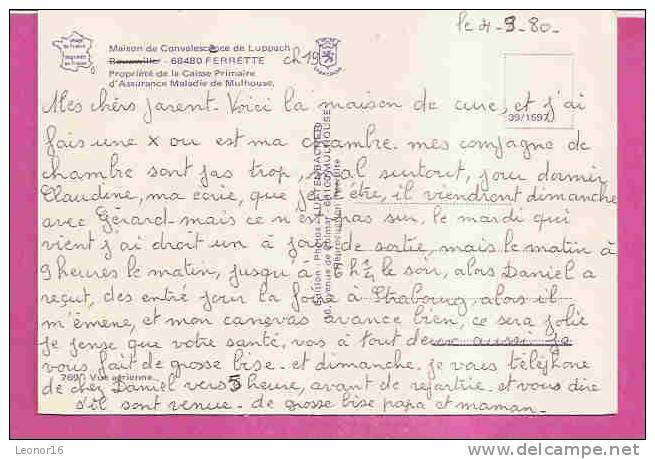 le 4-9-80-
Maison de Convalescence de Luppach
68480 FERRETTE
ch 19
Propriété de la Caisse Primaire
d'Assurance Maladie de Mulhouse.
Image de France
Imprimé en France
39/1597
Mes chèrs parent. Voici la maison de cure, et j'ai
fais une x ou est ma chambre. mes compagne de
chambre sont pas trop, mal surtout, pour dormir
Claudine, ma écrie, que peut être, il viendront dimanche
avec Gérard-mais ce n'est pas sur, le mardi qui
vient j'ai droit un à jour de sortie, mais le matin à
9 heures le matin, jusqu à 6h ½ le soir, alors Daniel a
reçut, des entré pour la foire à Strabourg, alors il
m'émene, et mon canevas avance bien, ce sera jolie
je pense que votre santé, vas à tout deux aussi je
vous fait de grosse bise. et dimanche. je vais téléphone
de chez Daniel vers 5 heure, avant de repartrie. et vous dire
s'il sont venue. de grosse bise papa et maman-
7691 Vue aérienne
Leonor16
http://www.delcampe.net